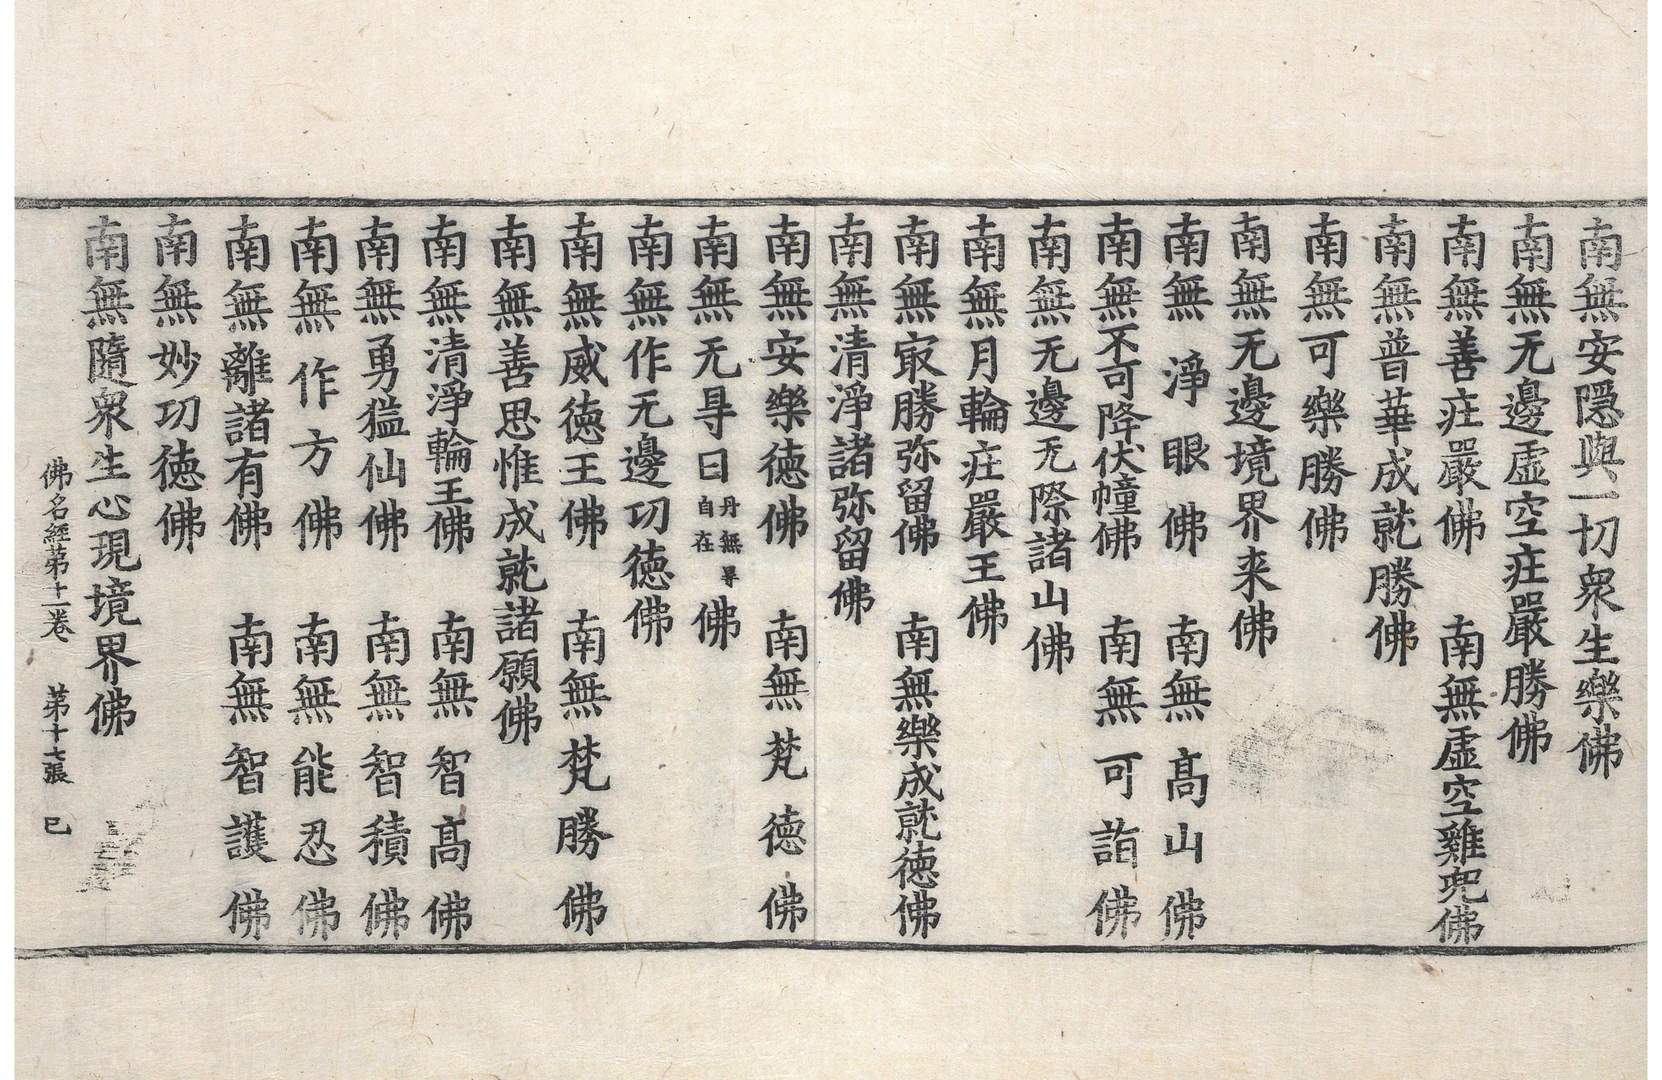 南無安隱與一切衆生樂佛
南無无邊虛空庄嚴勝佛
南無善庄嚴佛　南無虛空雞兜佛
南無普華成就勝佛
南無可樂勝佛
南無无邊境界来佛
南無淨眼佛　南無髙山佛
南無不可降伏幢佛　南無可詣佛
南無无邊无際諸山佛
南無月輪庄嚴王佛
南無㝡勝弥留佛　南無樂成就德佛
南無清淨諸弥留佛
南無安樂德佛　南無梵德佛
南無无㝵日丹無㝵自在佛
南無作无邊功德佛
南無威德王佛　南無梵勝佛
南無善思惟成就諸願佛
南無清淨輪王佛　南無智髙佛
南無勇猛仙佛　南無智積佛
南無作方佛　南無能忍佛
南無離諸有佛　南無智護佛
南無妙功德佛
南無隨衆生心現境界佛
佛名經第十二卷　第十七張　巳